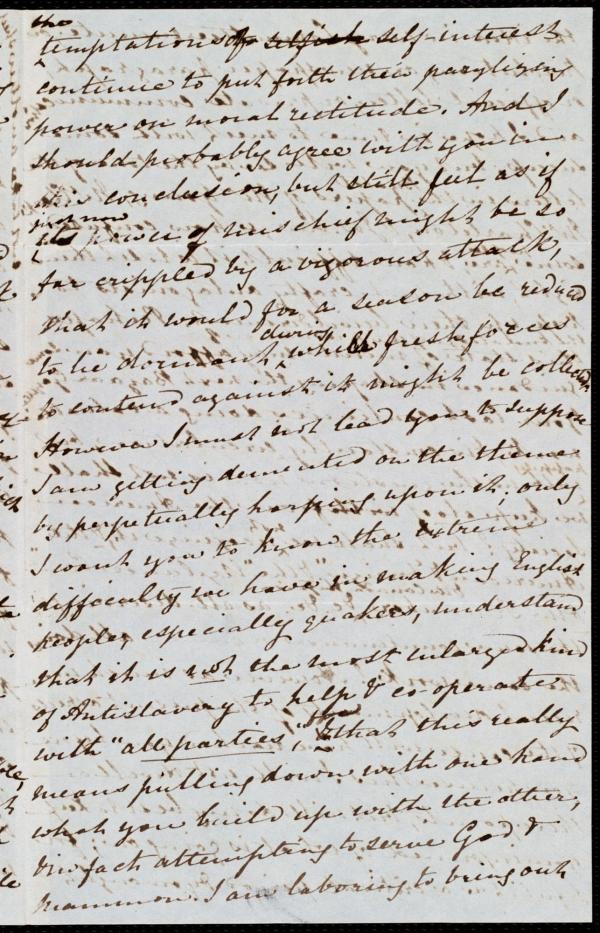 the
temptations of selfish self-interest
continue to put forth their paralizing
power on moral rectitude. And I
should probably agree with you in
this conclusion, but still feel as if
just now
its power of mischief might be so
far crippled by a vigorous attack,
that it would for a season be reduced
during
to lie dormant, while fresh forces
to contend against it might be collected
However I must not lead you to suppose
I am getting demented on the theme
by perpetually harping upon it; only
I want you to know the extreme
difficulty we have in making English
people, especially quakers, understand
that it is not the most enlarged kind
of Antislavery to help & co operate
with "all parties", that this really
means pulling down with one hand
what you build up with the other,
in fact attempting to serve God &
mammon. I am laboring to bring out